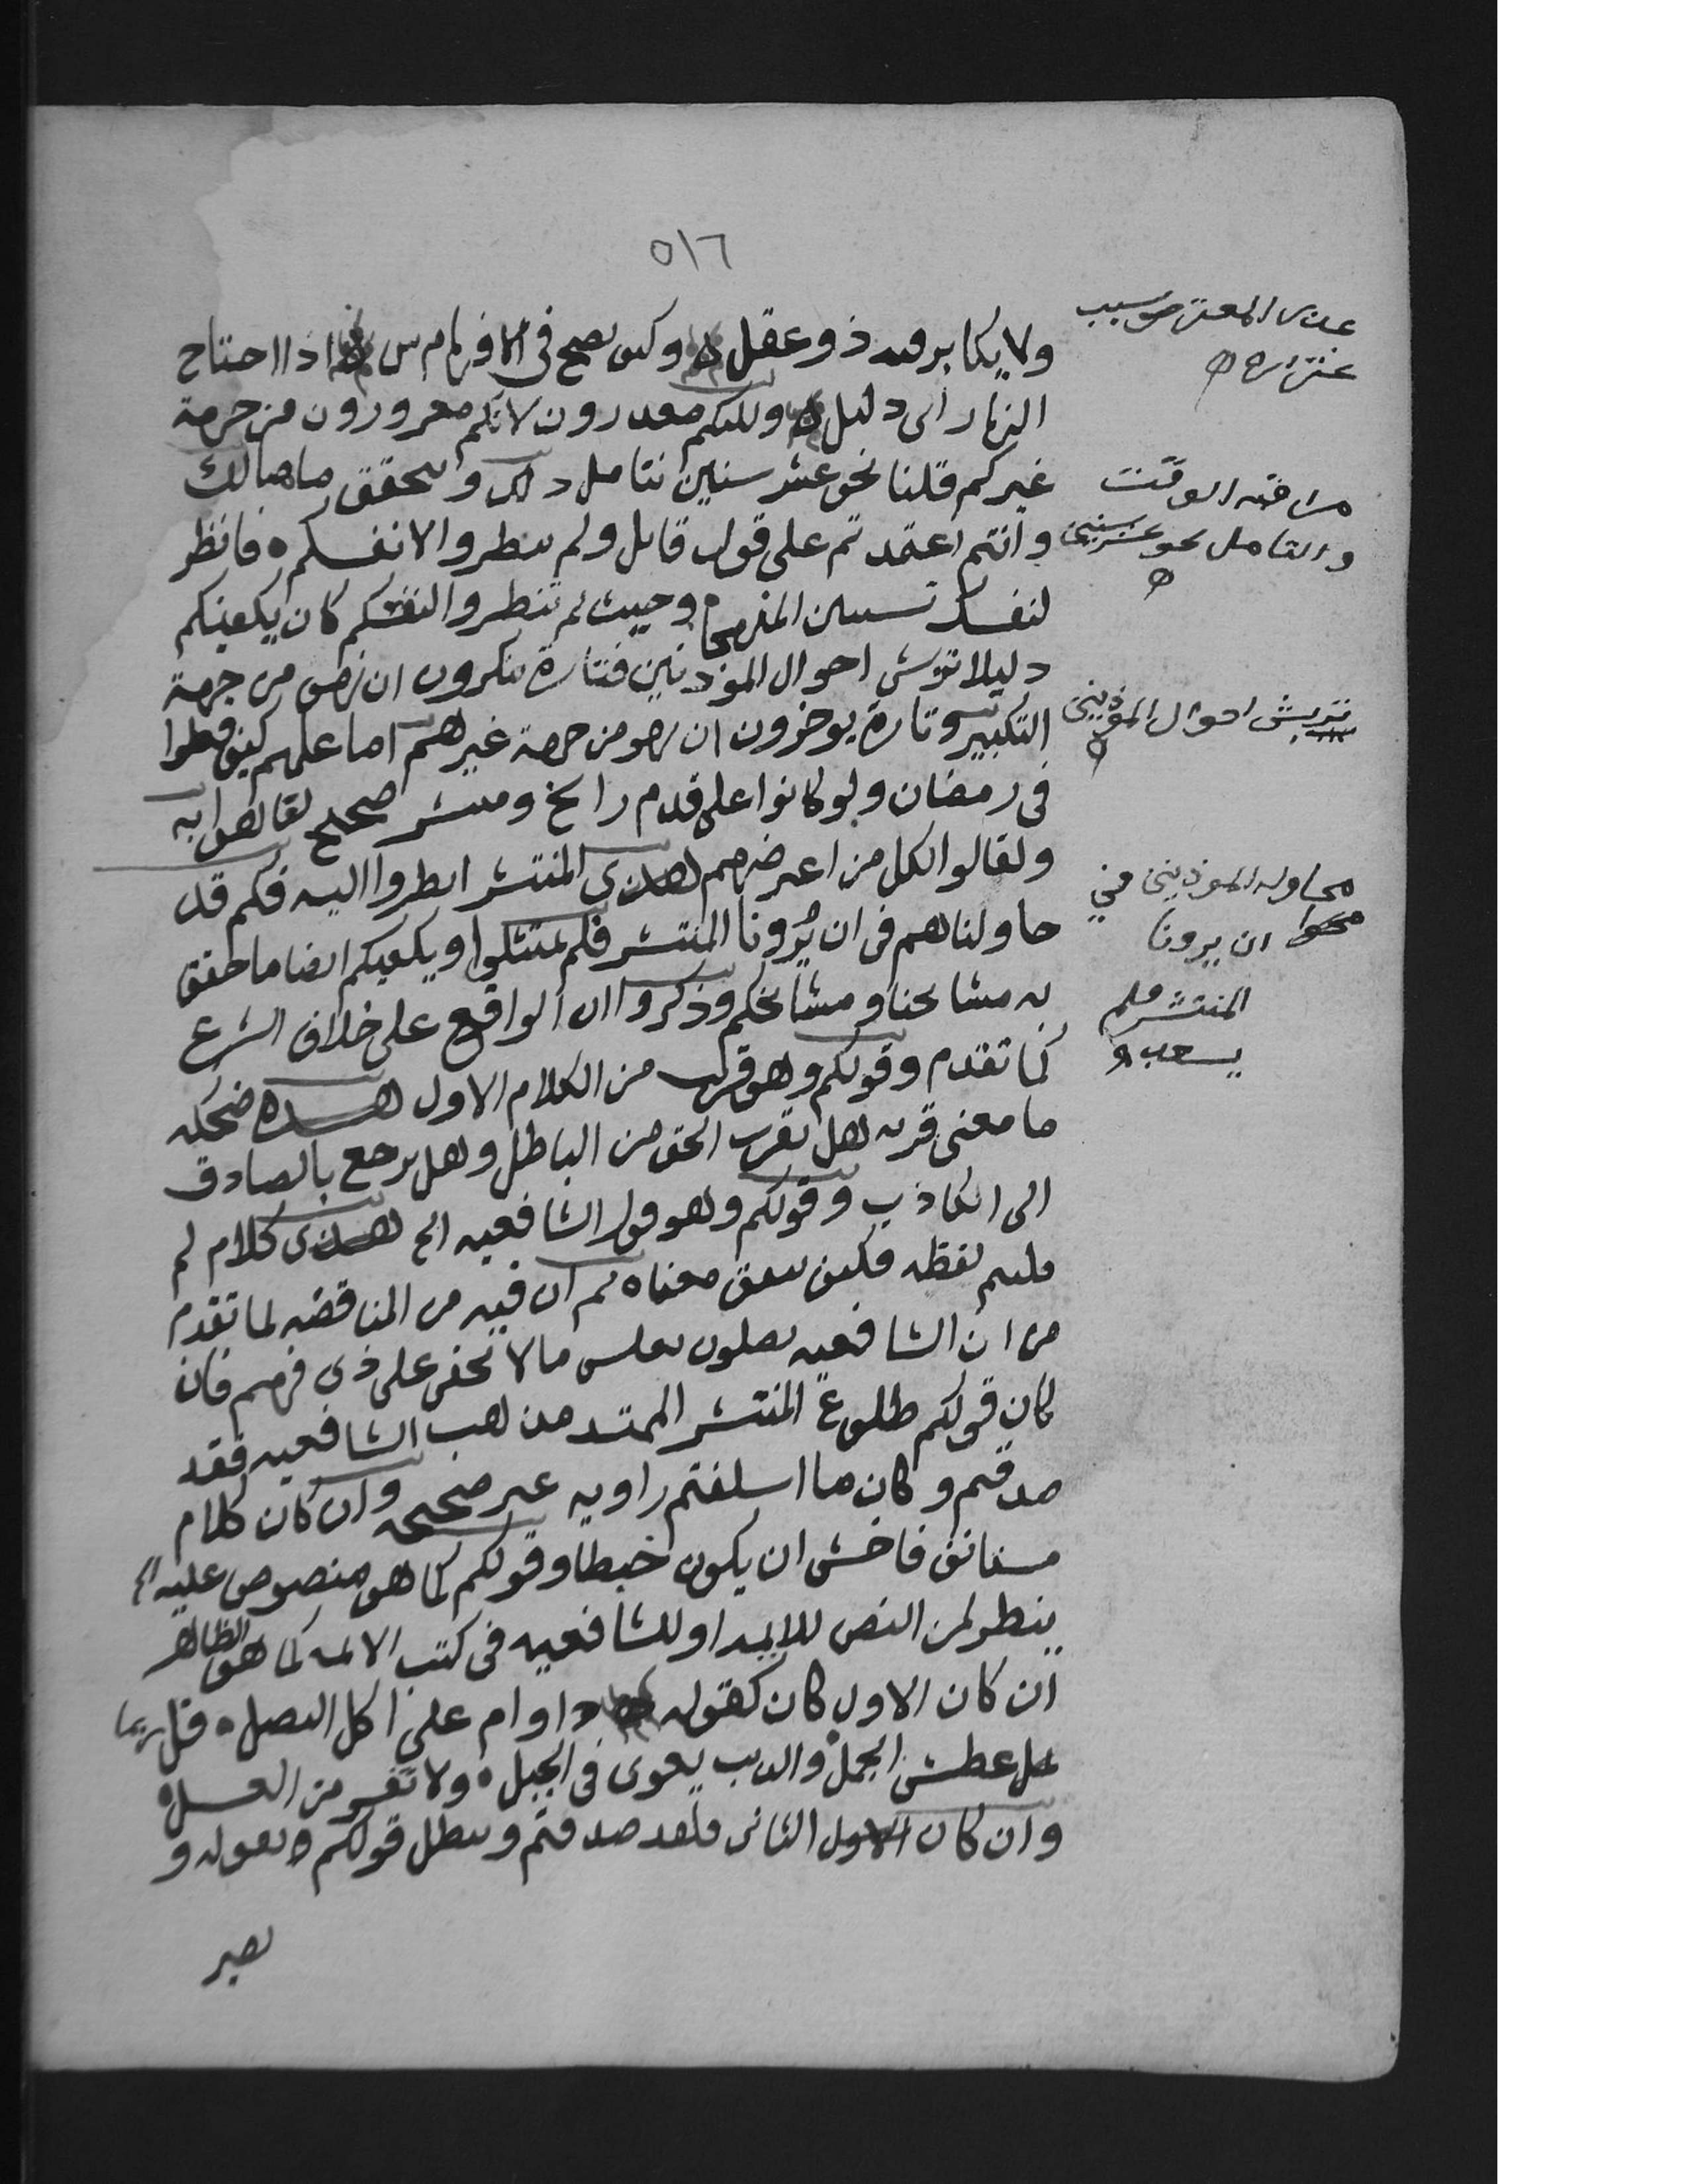 ٥١٦
ولا يكابر فيه ذو عقل وكيف يصح في الافهام اذا احتاج
النهار الى دليل ولكنكم معذورون لانكم مغرورون من جهة
غيركم قلنا نحو عشر سنين نتامل ذلك ونتحقق ما هنالك
وانتم اعتمدتم على قول قايل ولم تنظروا لانفسكم فانظر
لنفسك تستبين المنهجا وحيث لم تنظروا لانفسكم كان يكفيكم
دليلا تهوش احوال الموذنين فتارة ينكرون ان نهض من جهة
التكبير وتارة يوخرون ان نهض من جهة غيرهم اما علمهم كيف فعلوا
في رمضان ولو كانوا على قدم راسخ ومنتشر صحيح لقالوا به
ولقالوا لكل من اعترضهم هذى المنتشر انظروا اليه فكم قد
حاولناهم في ان يُرُونا المنتشر فلم يمتثلوا ويكفيكم ايضا ما حقق
به مشايخنا ومشايخكم وذكروا ان الواقع على خلاف الشرع
كما تقدم وقولكم وهو قريب من الكلام الاول هذه ضحكه
ما معنى قربه هل يقرب الحق من الباطل وهل يرجع بالصادق
الى الكاذب وقولكم وهو قول الشافعيه الخ هذى كلام لم
يلتيم لفظه فكيف يتفق معناه ثم ان فيه من المناقضه لما تقدم
من ان الشافعيه يصلون بغلس ما لا يخفى على ذى فهم فان
كان قولكم طلوع المنتشر الممتد مذهب الشافعيه فقد
صدقتم وكان ما اسلفتم راويه غير صحيحه وان كان كلام
مستانف فاخشى ان يكون خبطا وقولكم كما هو منصوص عليه الخ
ينظر لمن النص للايمه او للشافعيه في كتب الايمه كما هو الظاهر
ان كان الاول كان كقوله داوام على اكل البصل قل ربما
عطش الجمل والديب يعوى في الجبل ولا تفر من العسل
وان كان الاول الثاني فلقد صدقتم وبطل قولكم ونقوله و
نصير
عدى المعترض سبب
عن
مراقبه الوقت
والتامل نحو عشر سنين
تهويش احوال الموذنين
محاوله الموذنين في
ان يرونا
المنتشر فلم